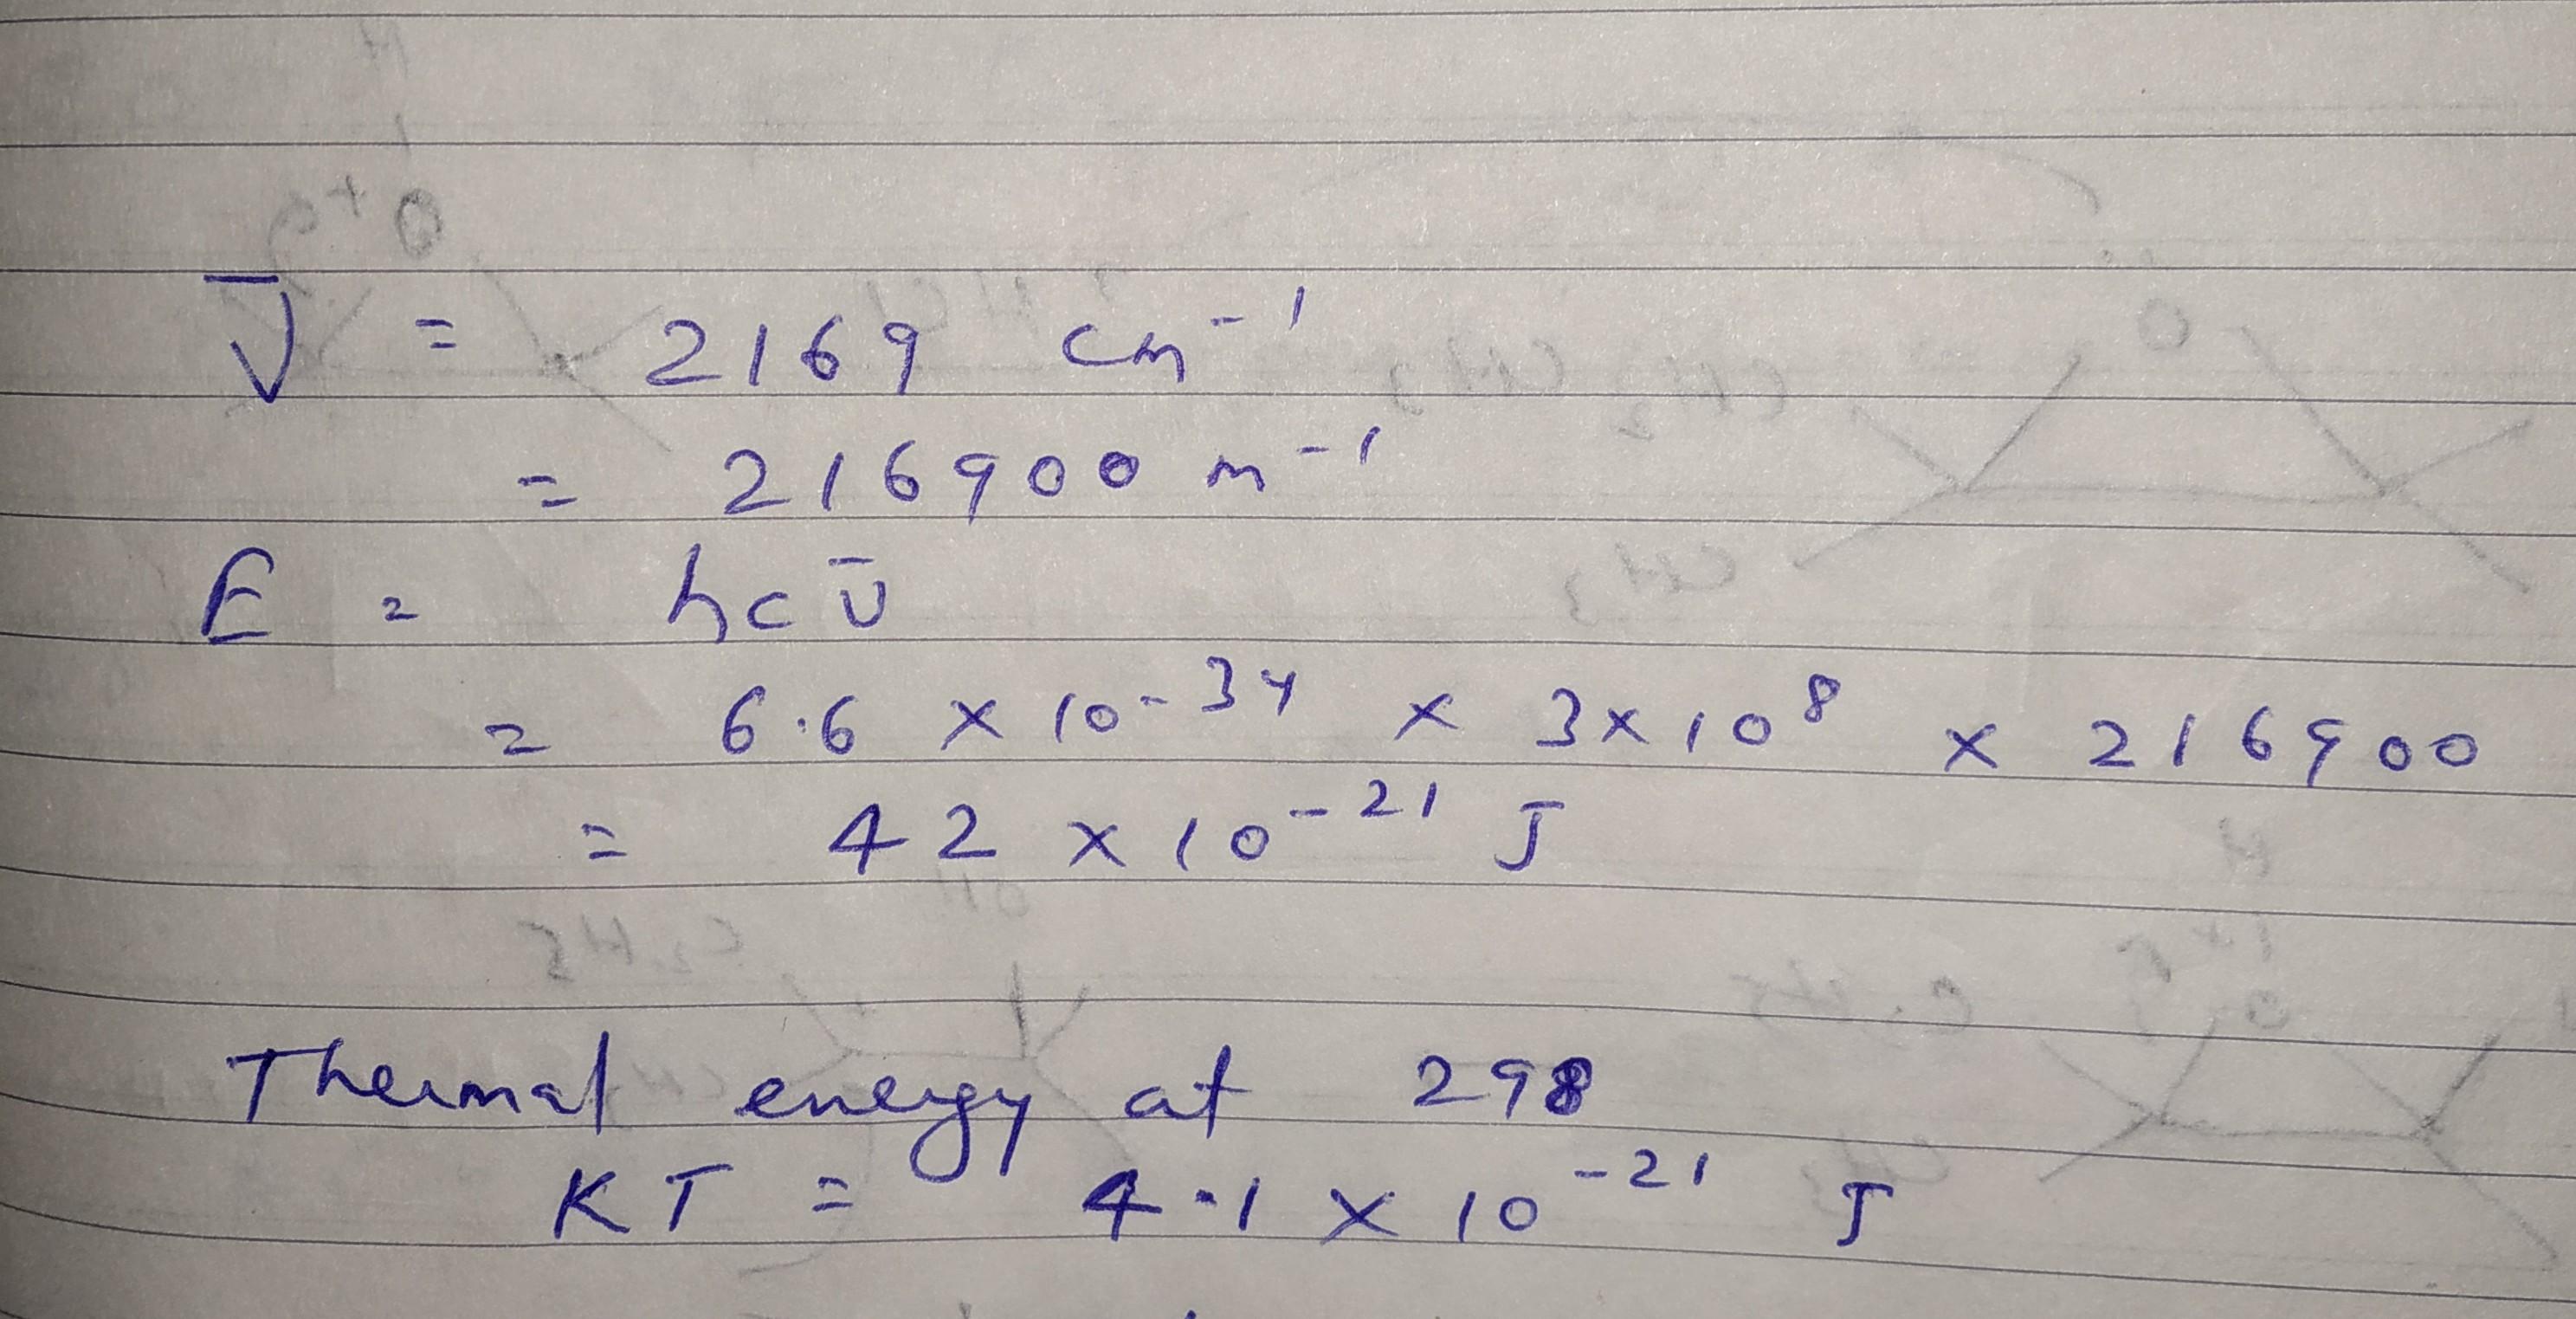 ν̄ = 2169 cm⁻¹
= 216900 m⁻¹
E = hcν̄
= 6.6 × 10⁻³⁴ × 3×10⁸ × 216900
= 42 × 10⁻²¹ J
Thermal energy at 298
KT = 4.1 × 10⁻²¹ J